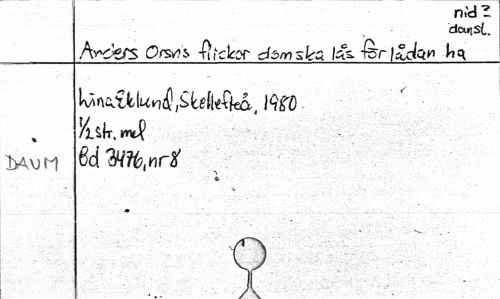 nid?
dansl.
Anders Orsn's flickor domska lås för lådan ha
Lina Eklund, Skellefteå, 1980
1/2 str. mel
Bd 3476, nr 8
DAUM